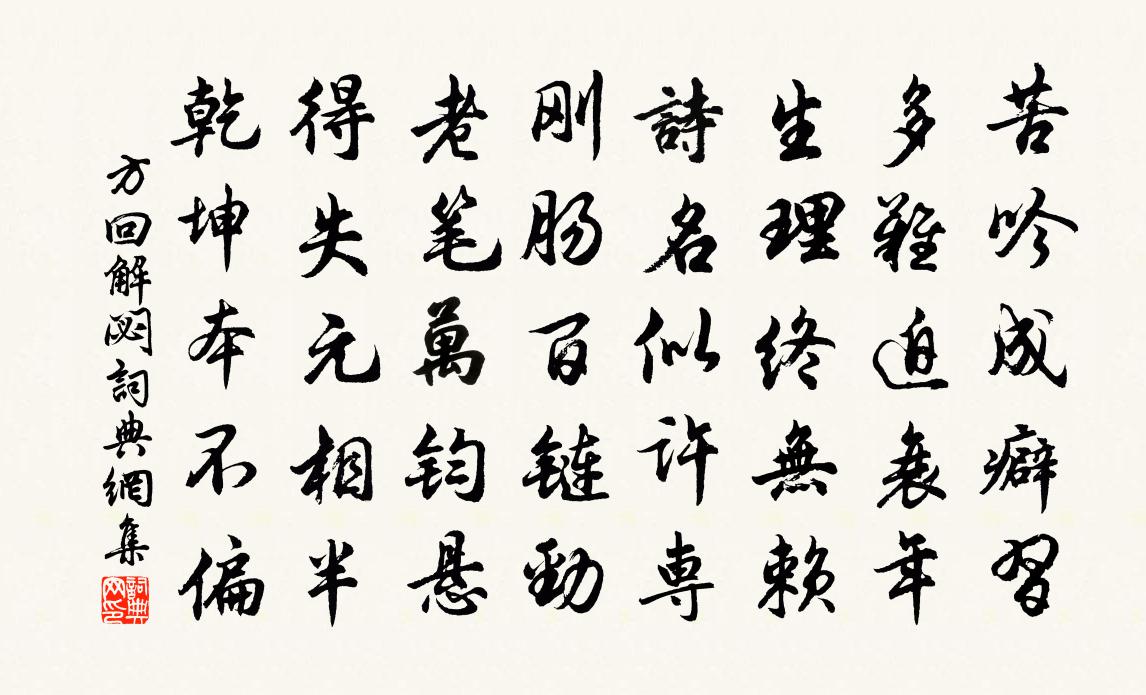 苦吟成癖習
多難迫衰年
生理終無賴
詩名似許専
刚肠百鏈勁
老笔萬鈞悬
得失元相半
乾坤本不偏
方回解悶詞典網集
詞典網印